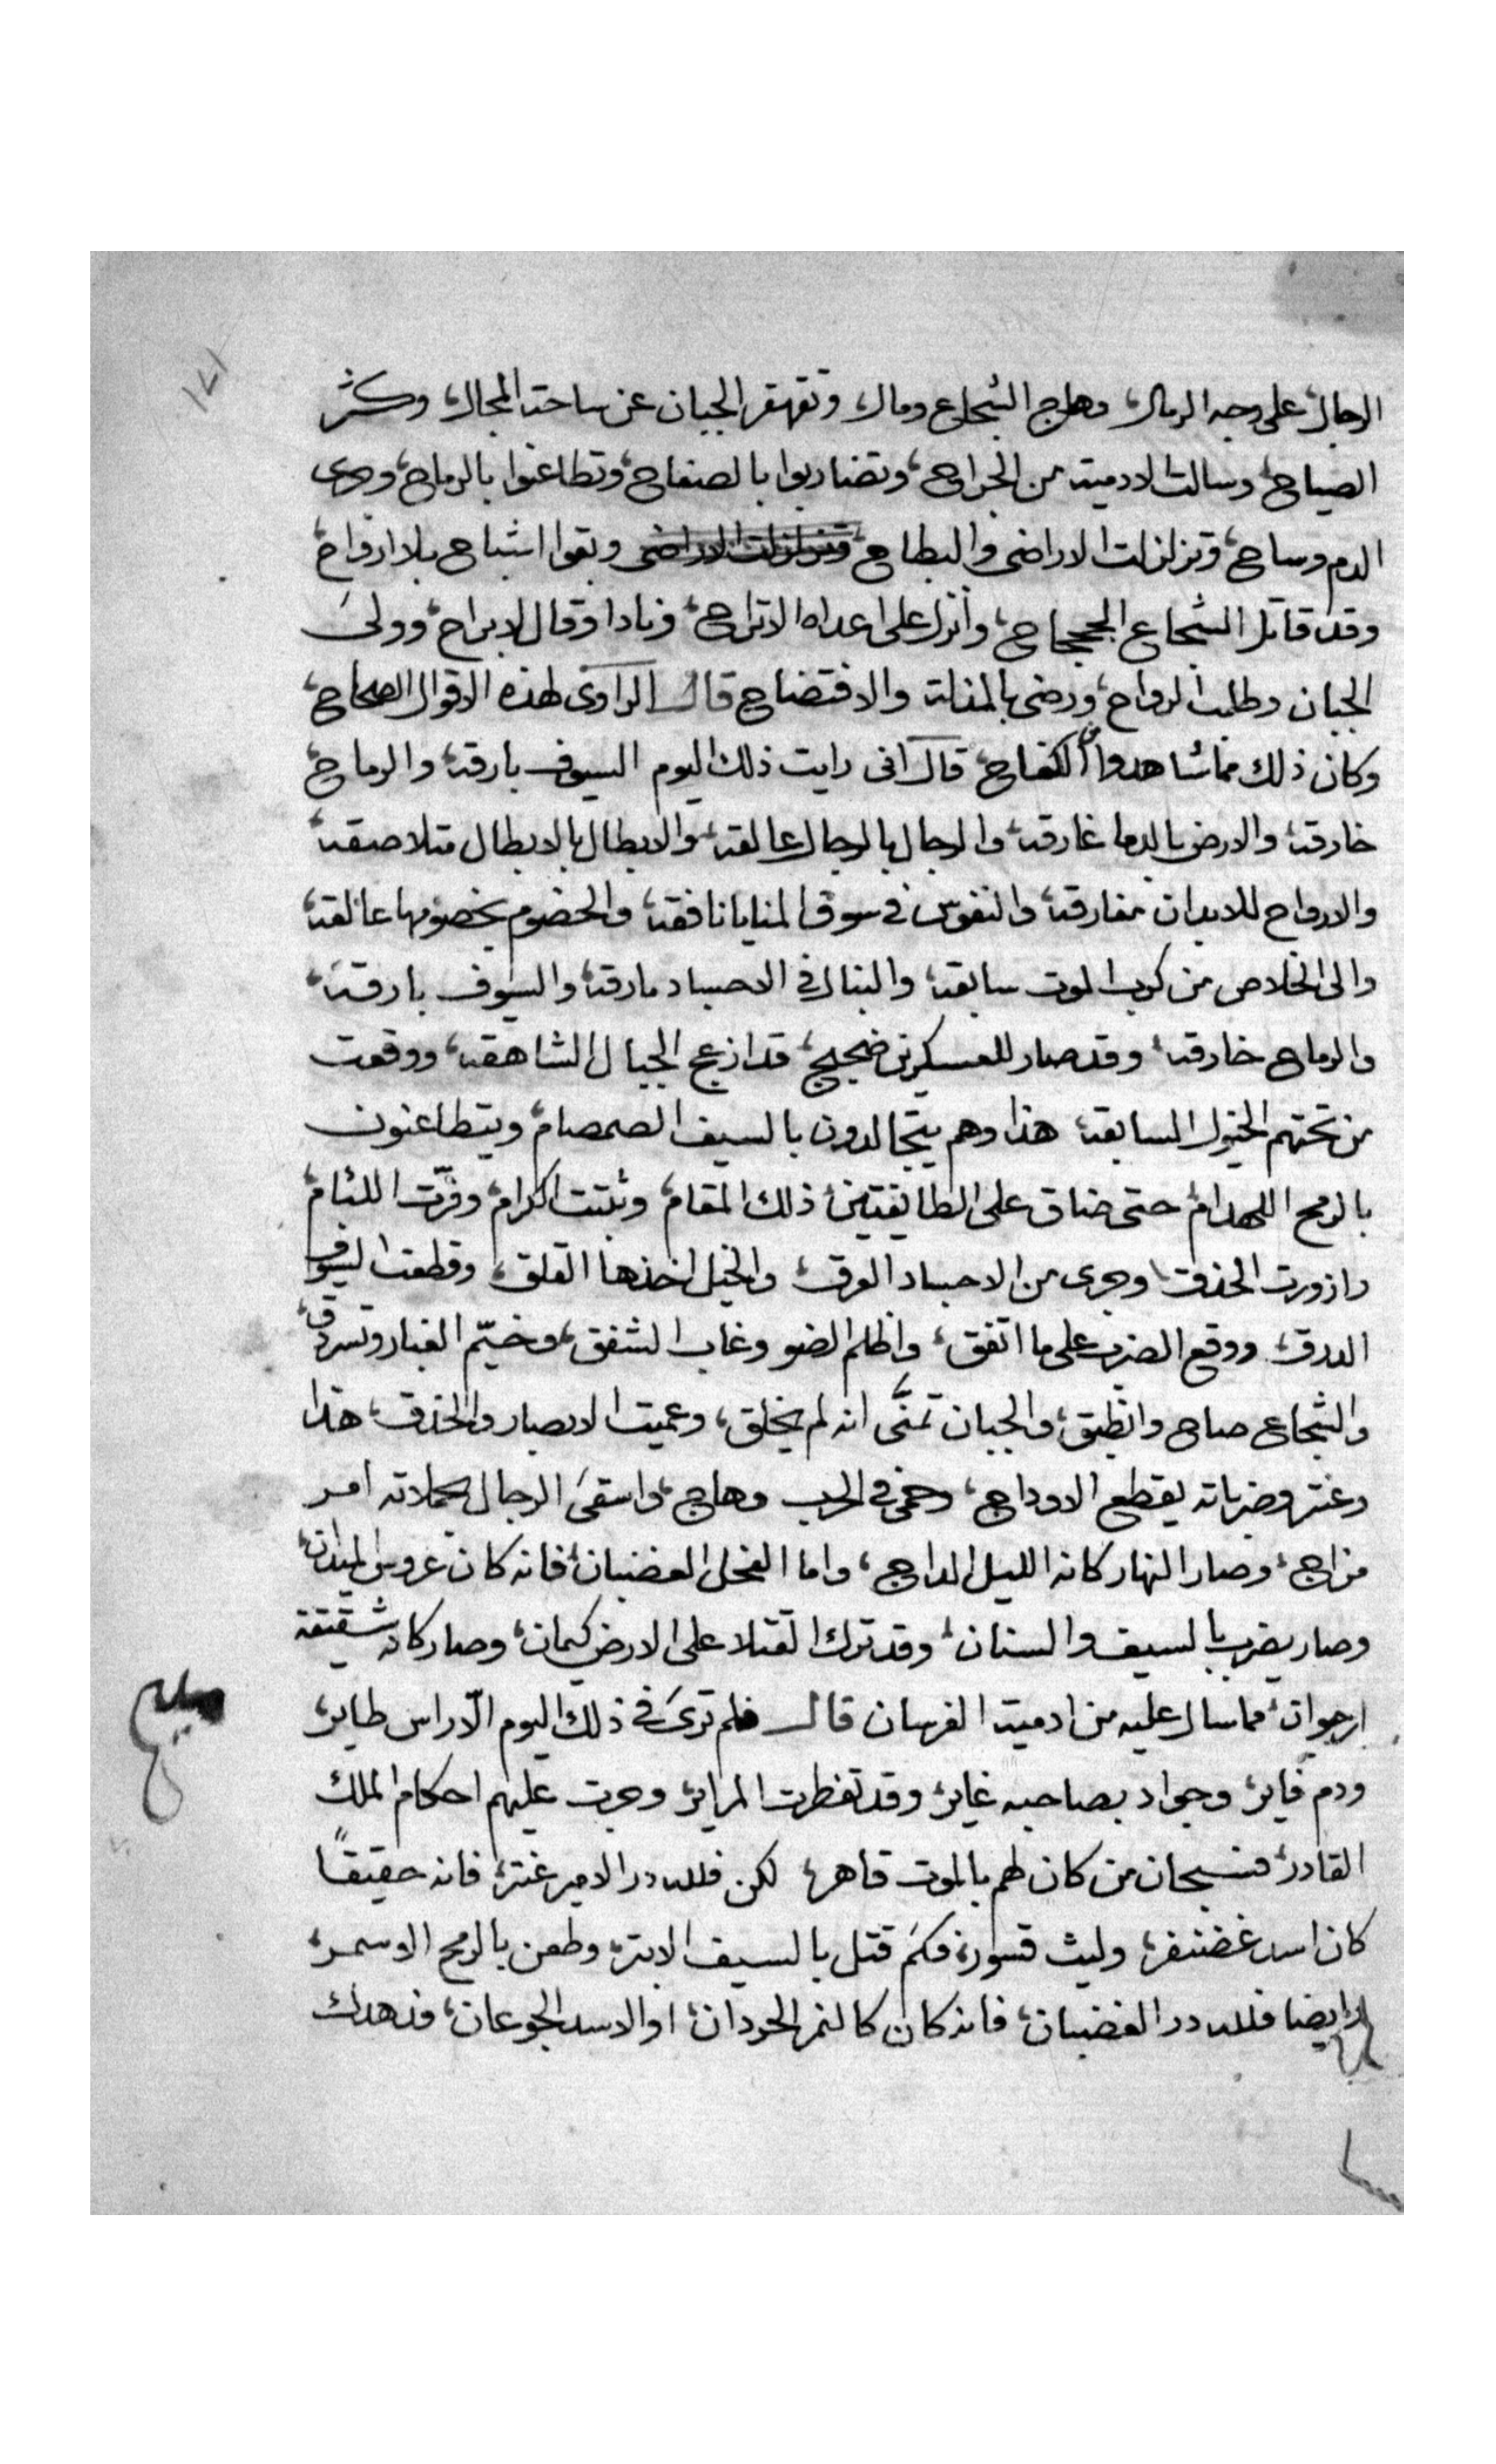 ١٧١
الرجال، على وجه الرمال، وهاج الشجاع ومال، وتقهقر الجبان عن ساحة المجال، وكثر
الصياح، وسالت الادمية من الجراح، وتضاربوا بالصفاح، وتطاعنوا بالرماح، وجرى
الدم وساح، وتزلزلت الاراضى والبطاح، وتزلزلت الاراضى وبقوا اشباح بلا ارواح،
وقد قاتل الشجاع الجحجاح، وأنزل على اعداه الاتراح، ونادا وقال لا براح، وولى
الجبان وطلب الرواح، ورضى بالمذلة والافتضاح قال الراوى لهذه الاقوال الصحاح،
وكان ذلك مما شاهدوا من الكفاح، قال انى رايت ذلك اليوم السيوف بارقة، والرماح
خارقة، والارض بالدما غارقة، والرجال بالرجال عالقة، والابطال بالابطال متلاصقة،
والارواح للابدان مفارقة، والنفوس فى سوق المنايا نافقة، والخصوم بخصومها عالقة،
والى الخلاص من كرب الموت سابقة، والنبال فى الاجساد مارقة، والسيوف بارقة،
والرماح خارقة، وقد صار للعسكرين ضجيج، قد ازعج الجبال الشاهقة، ووقعت
من تحتهم الخيول السابقة، هذا وهم يتجالدون بالسيف الصمصام، ويتطاعنون
بالرمح اللهدام، حتى ضاق على الطايفتين، ذلك المقام، وثبتت الكرام، وفرّت اللئام،
وازورت الحدق، وجرى من الاجساد العرق، والخيل اخذها القلق، وقطعت السيوف
الدرق، ووقع الضرب على ما اتفق، واظلم الضو وغاب الشفق، وخيّم الغبار وتسردق،
والشجاع صاح وانطبق، والجبان تمنَّى انه لم يخلق، وعميت الابصار والحدق، هذا
وعنتر وضرباته يقطع الاوداج، وحمى فى الحرب وهاج، واسقى الرجال بحملاته امر
مزاج، وصار النهار كانه الليل الداج، واما الفحل الغضبان، فانه كان عروس الميدان،
وصار يضرب بالسيف والسنان، وقد ترك القتلا على الارض كيمان، وصار كانه شقيقة
ارجوان، مما سال عليه من ادمية الفرسان قال فلم ترى فى ذلك اليوم الّا راس طاير،
ودم فاير، وجواد بصاحبه غاير، وقد تفطرت المراير، وجرت عليهم احكام الملك
القادر، فسبحان من كان لهم بالموت قاهر، لكن فلله در الامير عنتر، فانه حقيقًا
كان اسد غضنفر، وليث قسورة، فكم قتل بالسيف الابتر، وطعن بالرمح الاسمر،
وايضا فلله در الغضبان، فانه كان كالنمر الحردان، او الاسد الجوعان، فدهدك